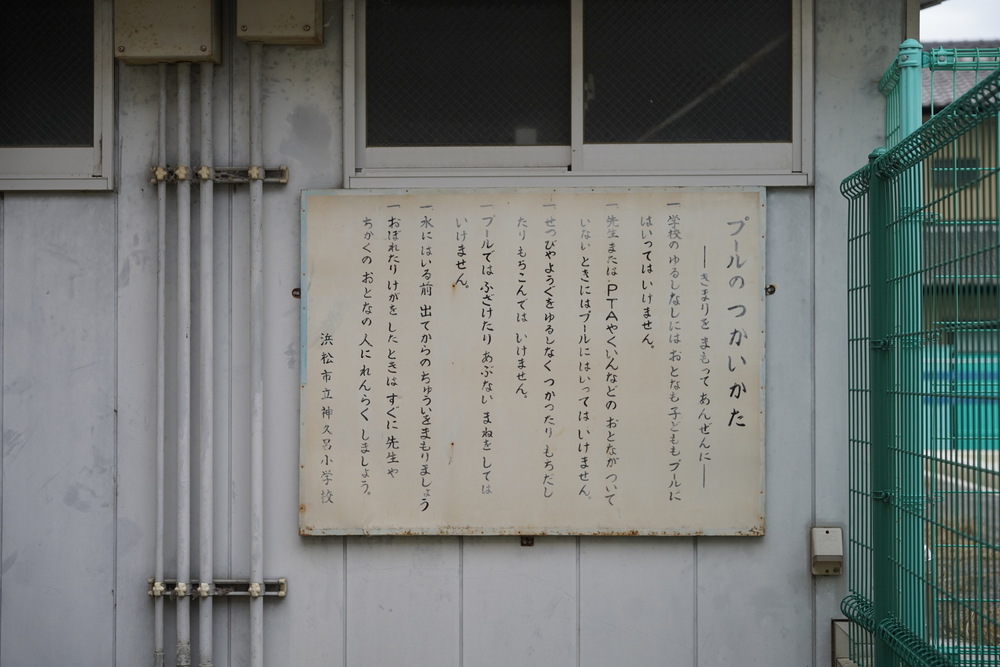 プールの つかいかた
――きまりを まもって あんぜんに――
一 学校の ゆるしなしには おとなも 子どもも プールに
はいっては いけません。
一 先生 または PTAやくいんなどの おとなが ついて
いない ときには プールに はいっては いけません。
一 せつびや ようぐを ゆるしなく つかったり もちだし
たり もちこんでは いけません。
一 プールでは ふざけたり あぶない まねを しては
いけません。
一 水に はいる前 出てからの ちゅういを まもりましょう
一 おぼれたり けがを した ときは すぐに 先生や
ちかくの おとなの 人に れんらく しましょう。
浜松市立神久呂小学校